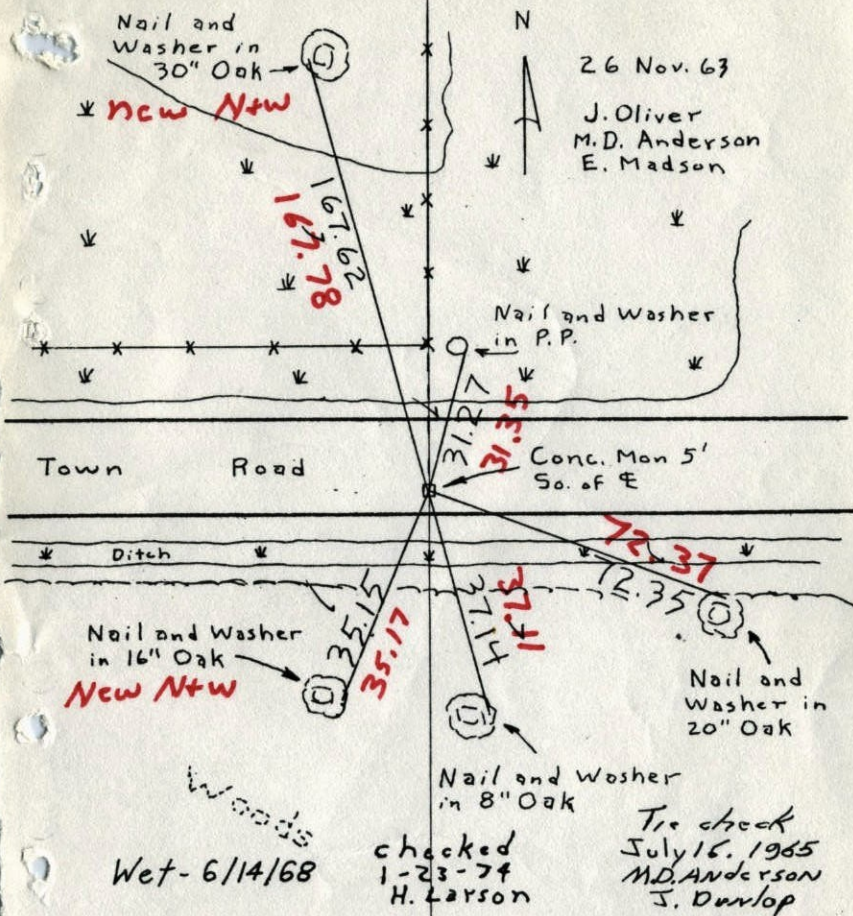 Nail and
Washer in
30" Oak
new N+W
N
26 Nov. 63
J. Oliver
M.D. Anderson
E. Madson
167.62
167.78
Nail and Washer
in P.P.
31.27
31.35
Town Road
Conc. Mon 5'
So. of ℄
Ditch
72.37
72.35
35.15
35.17
37.14
37.11
Nail and Washer
in 16" Oak
New N+W
Nail and
Washer in
20" Oak
Nail and Washer
in 8" Oak
Woods
Wet - 6/14/68
checked
1-23-74
H. Larson
Tie check
July 15, 1965
M.D. Anderson
J. Dunlop